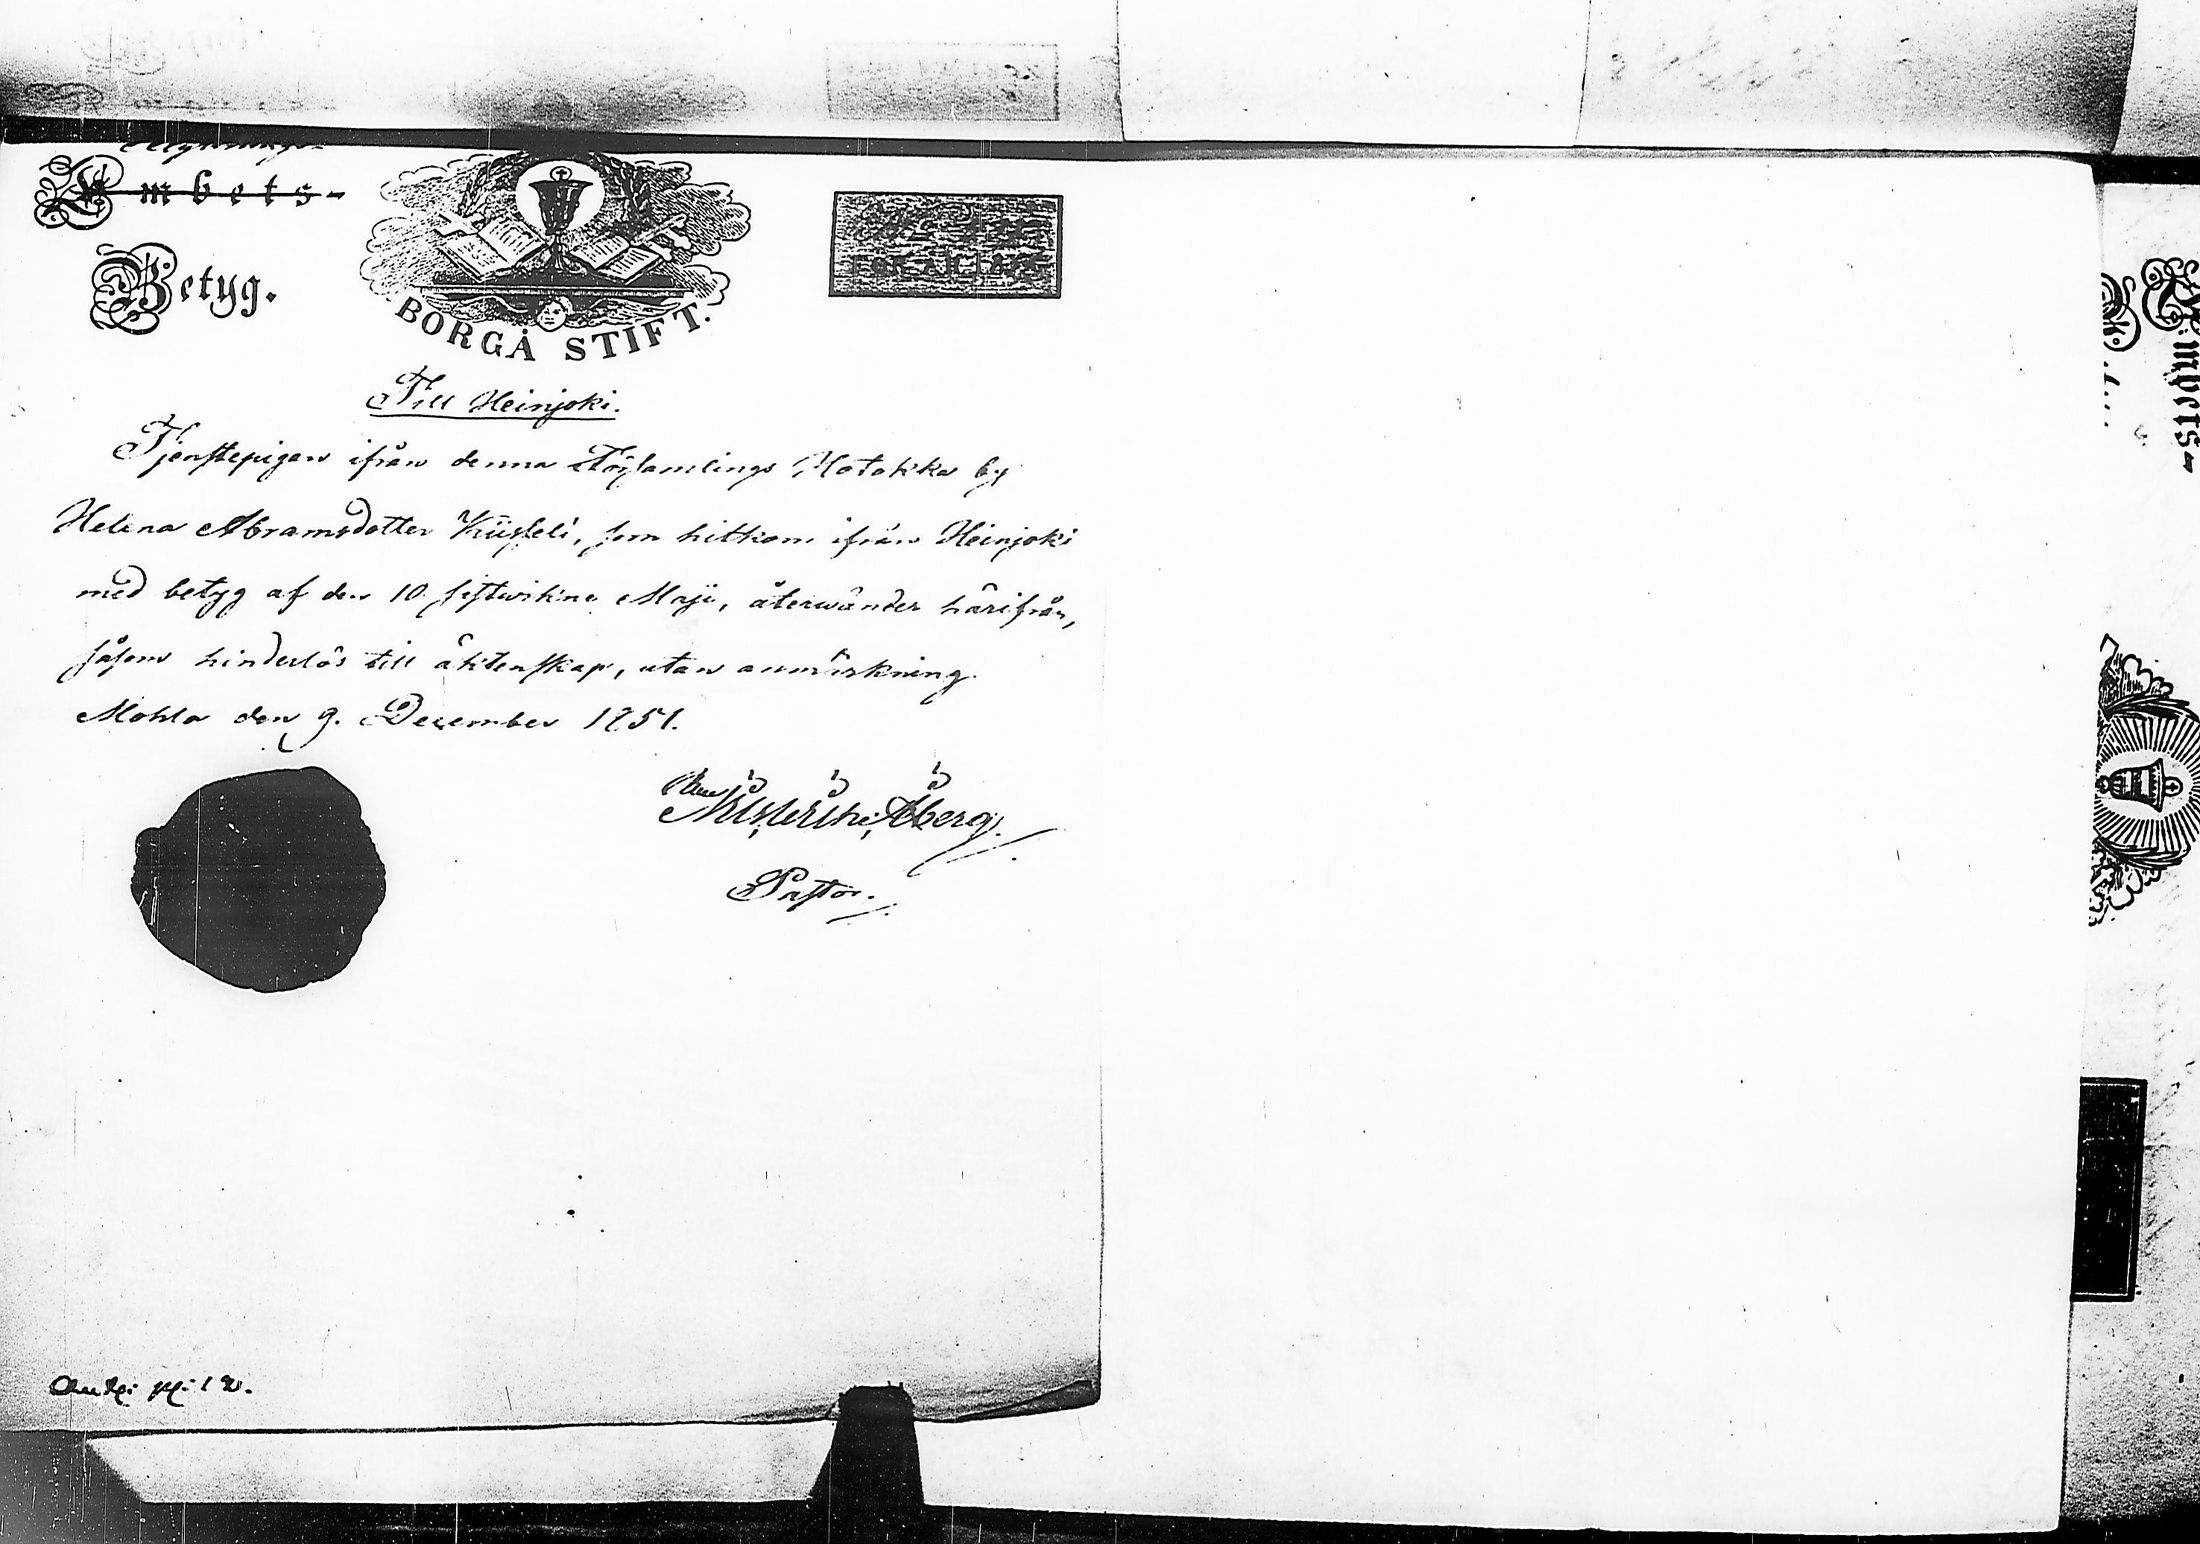 Embets-
Betyg.
BORGÅ STIFT.
Till Heinjoki.
Tjenstepigan ifrån denna Församlings Hotokka by
Helena Abramsdotter Kiisseli, som hitkom ifrån Heinjoki
med betyg af den 10 sistwikne Maji, återwänder härifrån,
såsom hinderlös till äktenskap, utan anmärkning.
Mohla den 9. December 1851.
Åberg.
Pastor.
Embets-